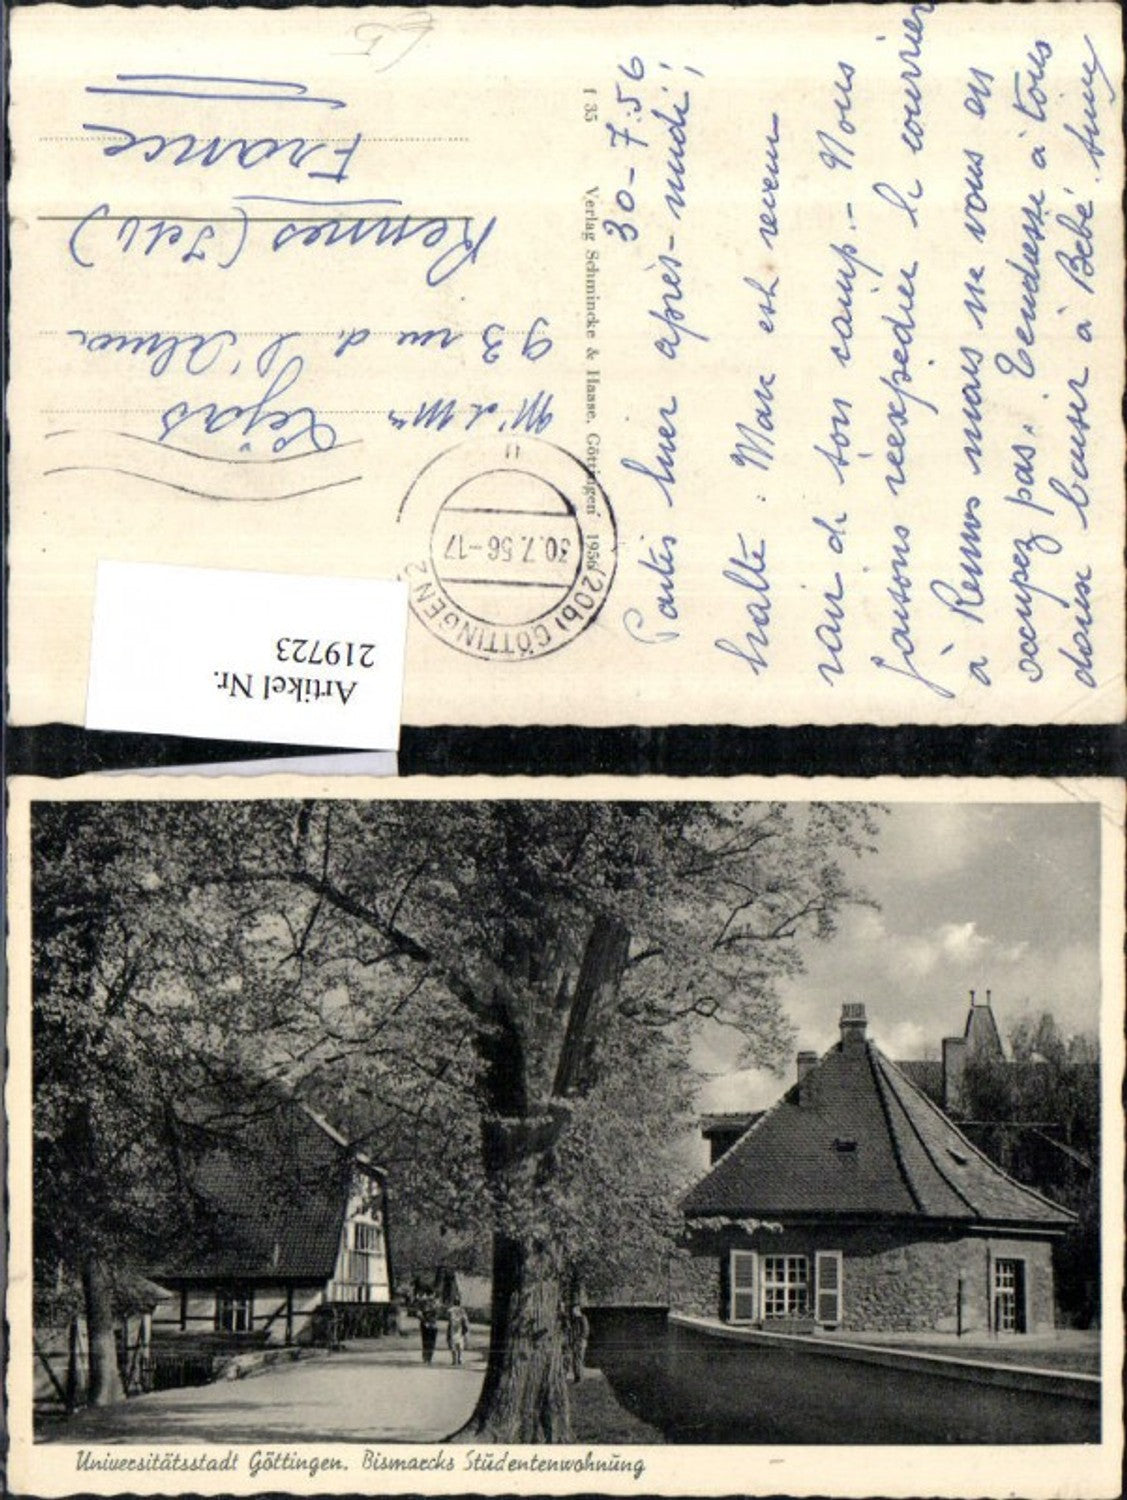 30-7-56
Partis hier après-midi;
halte: Marc est revenu
ravi de son camp.- Nous
faisons réexpédier le courrier
à Rennes mais ne vous en
occupez pas. Tendresse à tous
doux baiser à Bébé.
f 35 Verlag Schmincke & Haase, Göttingen 1956
(20b) GÖTTINGEN 2
30.7.56-17
11
Mr et Mme
Léjas
93 rue de l'Alma
Rennes (I et V)
France
Artikel Nr.
219723
Universitätsstadt Göttingen. Bismarcks Studentenwohnung